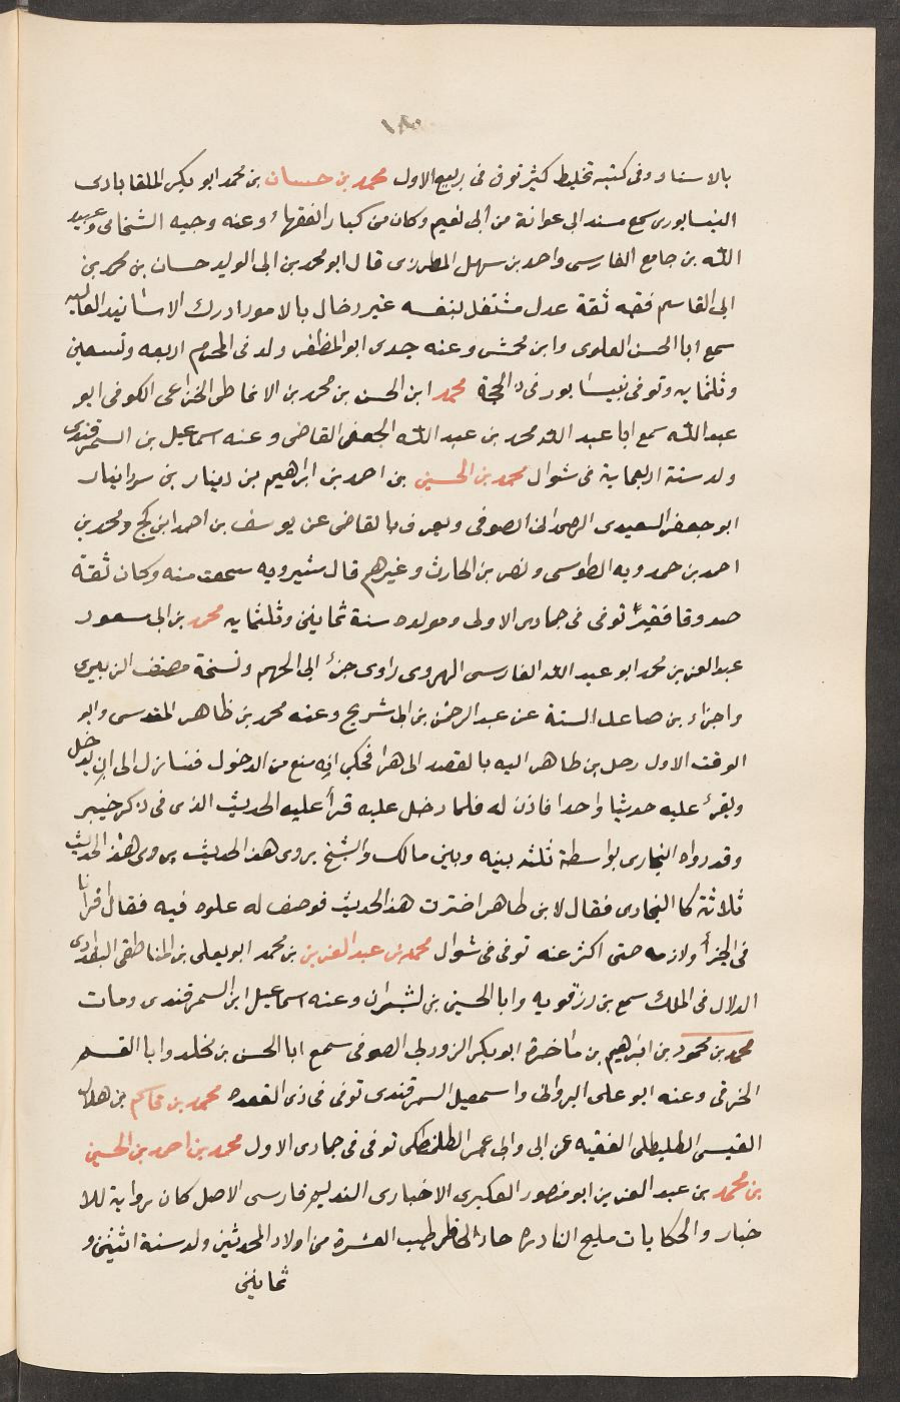 ١٨٠
بالاسناد وفى كتبه تخليط كثير توفى فى ربيع الاول محمد بن حسان بن محمد ابو بكر الملقابادى
النيسابورى سمع مسند ابى عوانة من ابى نعيم وكان من كبار الفقهاء وعنه وجيه الشخامى وعبيد
الله بن جامع الفارسى واحمد بن سهل المطرزى قال ابو محمد بن ابى الوليد حسان بن محمد بن
ابى القاسم فقه ثقة عدل مشتغل بنفسه غير دخال بالامور ادرك الاسانيد العاليه
سمع ابا الحسن العلوى وابن محمش وعنه جدى ابو المظفر ولد فى المحرم اربعه وتسعين
وثلثمايه وتوفى نيسابور فى ذ الحجة محمد ابن الحسن بن محمد بن الانماطى الخزاعى الكوفى ابو
عبد الله سمع ابا عبد الله محمد بن عبد الله الجعفى القاضى وعنه اسماعيل بن السمرقندى
ولد سنة اربعماية فى شوال محمد بن الحسين بن احمد بن ابراهيم بن دينار بن سرانيار
ابو جعفر السعيدى الصحرائى الصوفى ويعرف بالقاضى عن يوسف بن احمد ابن كج ومحمد بن
احمد بن حمدويه الطوسى ونصر بن الحارث وغيرهم قال شيرويه سمعت منه وكان ثقة
صدوقا فقيرًا توفى فى جمادى الاولى ومولده سنة ثمانين وثلثمايه محمد بن ابى مسعود
عبد العزيز بن محمد ابو عبد الله الفارسى الهروى راوى جزء ابى الجهم ونسخة مصنف الزبيرى
واجزاء بن صاعد الستة عن عبد الرحمن بن ابى شريح وعنه محمد بن طاهر المقدسى وابو
الوقت الاول رحل بن طاهر اليه بالقصد الى هراة فحكى انه منع من الدخول فتنازل الى ان يدخل
ويقرء عليه حديثا واحدا فاذن له فلما دخل عليه قرأ عليه الحديث الذى فى ذكر خيبر
وقد رواه البخارى بواسطة ثلثه بينه وبين مالك والشيخ يروى هذ الحديث يروى هذ الحديث
ثلاثة كا البخارى فقال لابن طاهر اخترت هذ الحديث فوصف له علوه فيه فقال اقرأ نا
فى الجزأ ولازمه حتى اكثر عنه توفى فى شوال محمد بن عبد العزيز بن بن محمد ابو يعلى بن المناطقى البغدادى
الدلال فى الملك سمع بن رزقويه وابا الحسين بن بشران وعنه اسماعيل ابن السمرقندى ومات
محمد بن محمود بن ابرهيم بن ماخرة ابو بكر الزورنى الصوفى سمع ابا الحسن بن مخلد وابا القسم
الخرقى وعنه ابو على البردانى واسمعيل السمرقندى توفى فى ذى القعده محمد بن قاسم بن هلال
القيسى الطليطلى الفقيه عن ابى وابى عمر الطلمنكى توفى فى جمادى الاول محمد بن احمد بن الحسين
بن محمد بن عبد العزيز ابو منصور العكبرى الاخبارى النديم فارسى الاصل كان رواية للا
خبار والحكايات مليح النادره حاد الخاطر طيب العشرة من اولاد المحدثين ولد سنة اثنين و
ثمانين